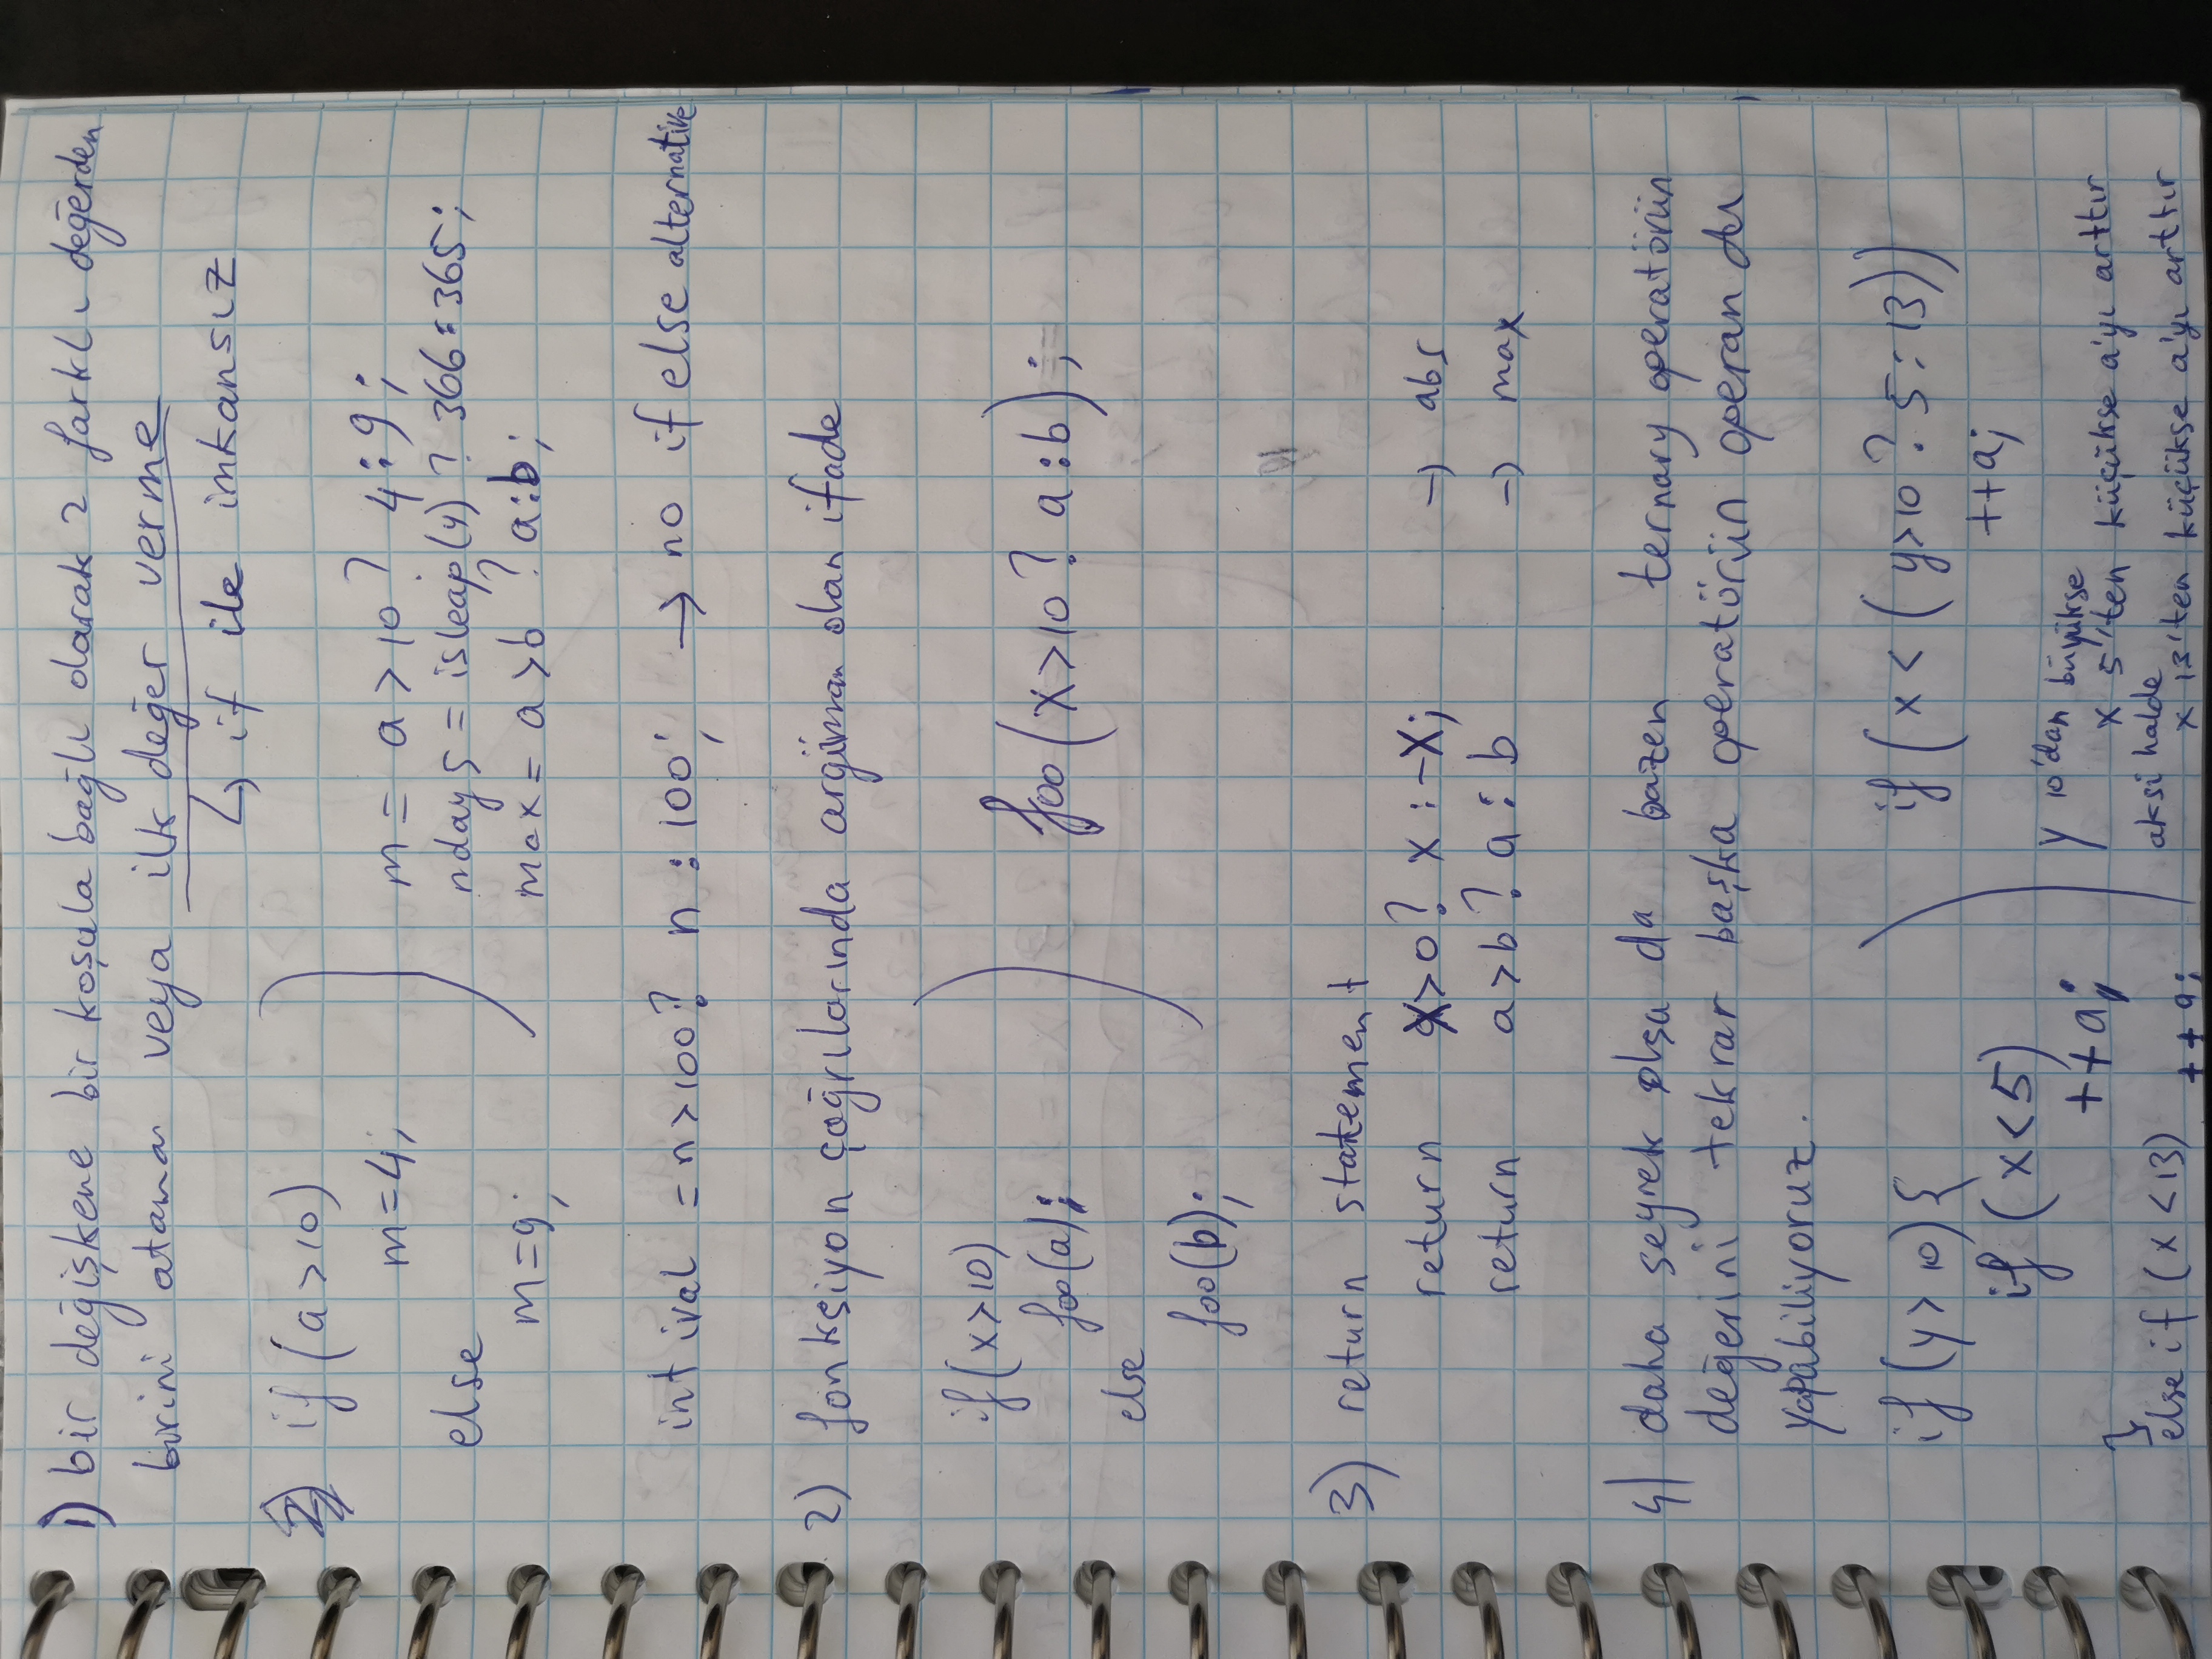 1) bir değişkene bir koşula bağlı olarak 2 farklı değerden
birini atama veya ilk değer verme
↳ if ile imkansız
if (a>10)
m=4;
else
m=9;
m = a>10 ? 4:9;
ndays = isleap(y) ? 366:365;
max = a>b ? a:b;
int ival = n>100? n : 100; → no if else alternative
2) fonksiyon çağrılarında argüman olan ifade
if(x>10)
foo(a);
else
foo(b);
foo(x>10? a:b);
3) return statement
return x>0? x : -x; → abs
return a>b? a : b → max
4) daha seyrek olsa da bazen ternary operatörün
değerini tekrar başka operatörün operandı
yapabiliyoruz.
if (y> 10) {
if (x<5)
++a;
}
else if (x<13)
++a;
if (x < (y>10 ? 5:13))
++a;
y 10'dan büyükse
x 5'ten küçükse a'yı arttır
aksi halde
x 13'ten küçükse a'yı arttır